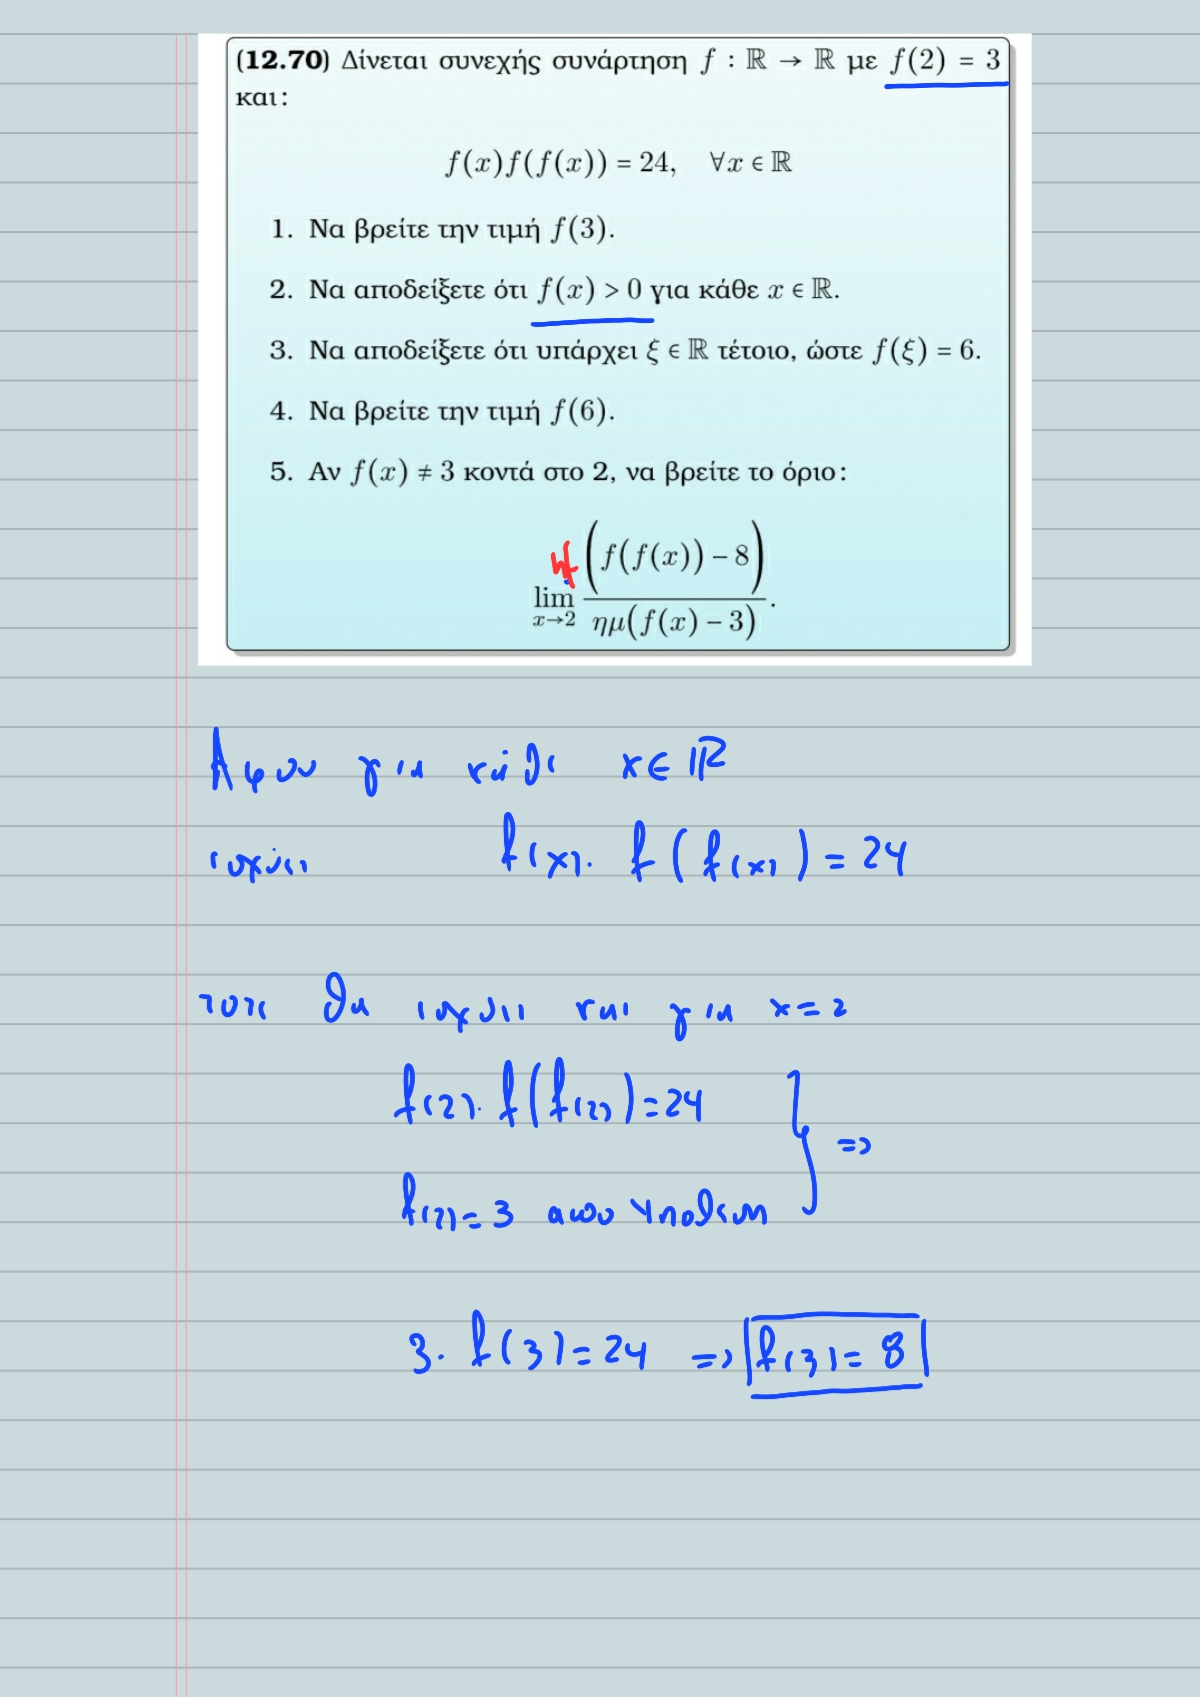 (12.70) Δίνεται συνεχής συνάρτηση f : ℝ → ℝ με f(2) = 3
και:
f(x)f(f(x)) = 24, ∀x ∈ ℝ
1. Να βρείτε την τιμή f(3).
2. Να αποδείξετε ότι f(x) > 0 για κάθε x ∈ ℝ.
3. Να αποδείξετε ότι υπάρχει ξ ∈ ℝ τέτοιο, ώστε f(ξ) = 6.
4. Να βρείτε την τιμή f(6).
5. Αν f(x) ≠ 3 κοντά στο 2, να βρείτε το όριο:
(f(f(x)) − 8)
lim x→2 ημ(f(x) − 3) .
Αφου για κάθε x ∈ ℝ
ισχύει f(x). f(f(x)) = 24
τοτε θα ισχύει και για x = 2
f(2). f(f(2)) = 24
=>
f(2) = 3 απο υποθεση
3. f(3) = 24 => f(3) = 8